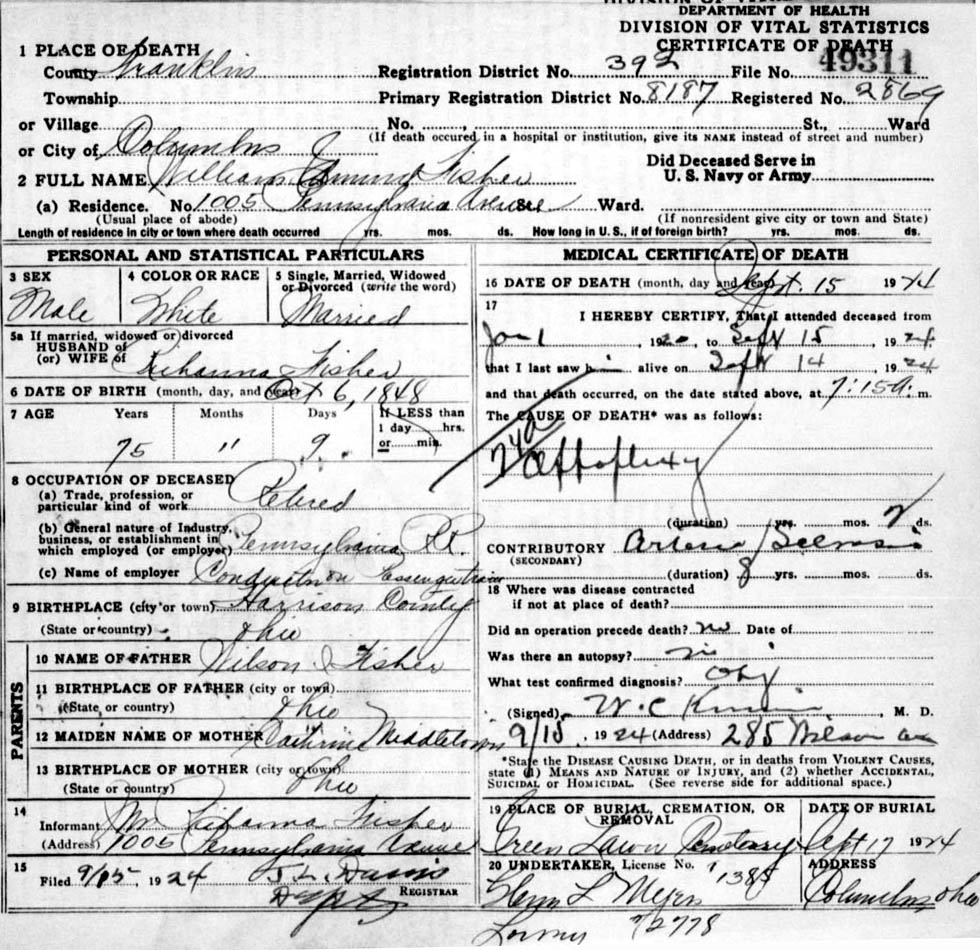 DEPARTMENT OF HEALTH
DIVISION OF VITAL STATISTICS
CERTIFICATE OF DEATH
1 PLACE OF DEATH
County Franklin Registration District No. 392 File No. 49311
Township Primary Registration District No. 8187 Registered No. 2869
or Village No. St., Ward
(If death occured in a hospital or institution, give its NAME instead of street and number)
or City of Columbus
2 FULL NAME William Fisher
Did Deceased Serve in
U. S. Navy or Army
(a) Residence. No. 1005 Pennsylvania Avenue St. Ward.
(Usual place of abode) (If nonresident give city or town and State)
Length of residence in city or town where death occurred yrs. mos. ds. How long in U. S., if of foreign birth? yrs. mos. ds.
PERSONAL AND STATISTICAL PARTICULARS
3 SEX
Male
4 COLOR OR RACE
White
5 Single, Married, Widowed
or Divorced (write the word)
Married
5a If married, widowed or divorced
HUSBAND of
(or) WIFE of Fisher
6 DATE OF BIRTH (month, day, and year) Oct 6, 1848
7 AGE Years Months Days If LESS than
1 day hrs.
or min.
75 11 9
8 OCCUPATION OF DECEASED
(a) Trade, profession, or
particular kind of work Retired
(b) General nature of Industry,
business, or establishment in
which employed (or employer) Pennsylvania RR.
(c) Name of employer Conductor on Passenger train
9 BIRTHPLACE (city or town) Harrison County
(State or country) Ohio
PARENTS
10 NAME OF FATHER Wilson Fisher
11 BIRTHPLACE OF FATHER (city or town)
(State or country) Ohio
12 MAIDEN NAME OF MOTHER
13 BIRTHPLACE OF MOTHER (city or town)
(State or country) Ohio
14
Informant Fisher
(Address) 1005 Pennsylvania Avenue
15
Filed 9/15, 1924 Davis
REGISTRAR
MEDICAL CERTIFICATE OF DEATH
16 DATE OF DEATH (month, day and year) Sept. 15 1924
17
I HEREBY CERTIFY, That I attended deceased from
Jan 1, 1920, to Sept 15, 1924
that I last saw h alive on Sept 14, 1924
and that death occurred, on the date stated above, at 7:15 a. m.
The CAUSE OF DEATH* was as follows:
74a
Apoplexy
(duration) yrs. mos. 2 ds.
CONTRIBUTORY Arterio Sclerosis
(SECONDARY)
(duration) 8 yrs. mos. ds.
18 Where was disease contracted
if not at place of death?
Did an operation precede death? no Date of
Was there an autopsy? no
What test confirmed diagnosis?
(Signed) W. C. , M. D.
9/15, 1924 (Address) 285 Wilson
*State the DISEASE CAUSING DEATH, or in deaths from VIOLENT CAUSES,
state (1) MEANS AND NATURE OF INJURY, and (2) whether ACCIDENTAL,
SUICIDAL or HOMICIDAL. (See reverse side for additional space.)
19 PLACE OF BURIAL, CREMATION, OR
REMOVAL
Green Lawn Cemetery
DATE OF BURIAL
Sept 17 1924
20 UNDERTAKER, License No.
Glenn L Myers
ADDRESS
Columbus, Ohio